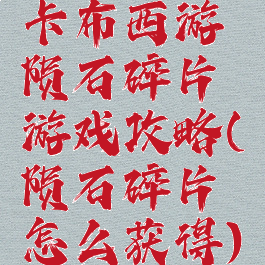 卡布西游
陨石碎片
游戏攻略(
陨石碎片
怎么获得)